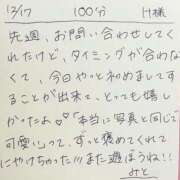 12/17 100分 H様
先週、お問い合わせしてく
れたけど、タイミングが合わな
くて、今日やっと初めましてす
ることが出来て、とっても嬉し
かったよ♡♡本当に写真と同じで
可愛いって、ずっと褒めてくれて
にやけちゃった!!!また遊ぼうね!!
みと